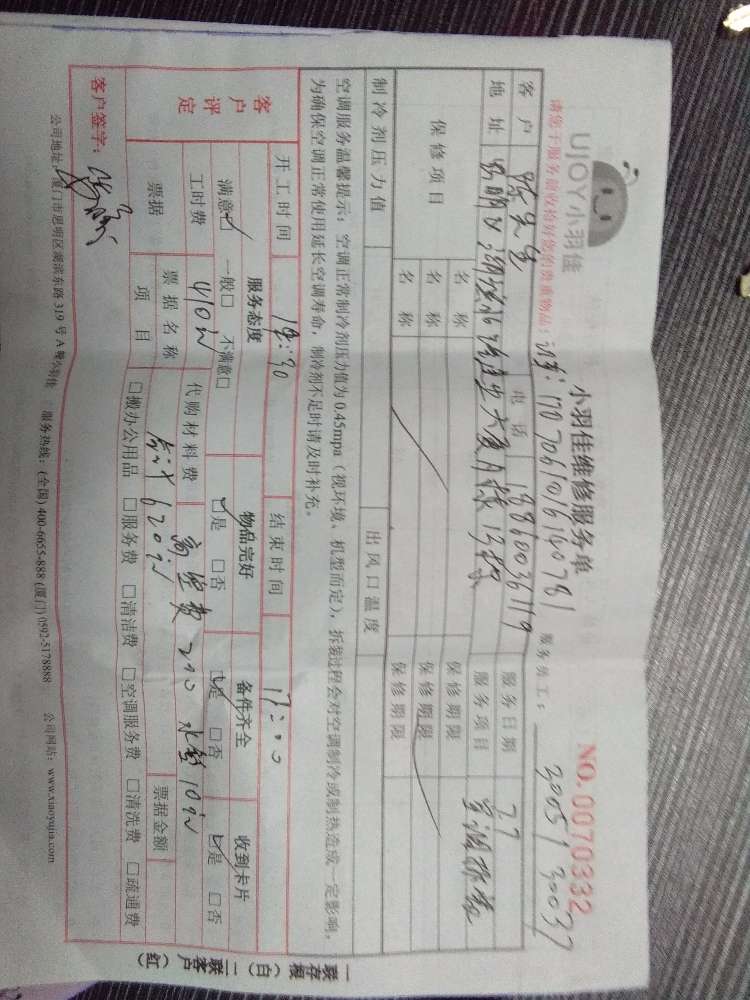 UJOY小羽佳
小羽佳维修服务单
NO.0070332
请您于服务前收捡好您的贵重物品；
订单：170706101640781
服务员工：30051 30037
客户 陈先生 电话 13860036119 服务日期 7.7
地址 思明区湖滨北 大厦 服务项目 空调拆装
保修项目 名称 保修期限
名称 保修期限
名称 保修期限
制冷剂压力值 出风口温度
空调服务温馨提示：空调正常制冷剂压力值为 0.45mpa（视环境、机型而定），拆装过程会对空调制冷或制热造成一定影响，
为确保空调正常使用延长空调寿命，制冷剂不足时请及时补充。
开工时间 结束时间 17:00
客户评定 服务态度 物品完好 备件齐全 收到卡片
满意☑ 一般□ 不满意□ ☑是 □否 ☑是 □否 ☑是 □否
工时费 410元 代购材料费 高空费 200 10元
票据 票据名称 合计 620元 票据金额
项目 □搬办公用品 □服务费 □清洁费 □空调服务费 □清洗费 □疏通费
客户签字：
公司地址：厦门市思明区湖滨东路 319 号 A 服务热线：(全国) 400-6655-888 (厦门) 0592-5178888 公司网站：www.xiaoyujia.com
一联存根（白）二联客户（红）